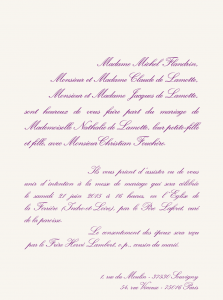 Madame Michel Flandrin,
Monsieur et Madame Claude de Lamotte,
Monsieur et Madame Jacques de Lamotte,
sont heureux de vous faire part du mariage de
Mademoiselle Nathalie de Lamotte, leur petite-fille
et fille, avec Monsieur Christian
Ils vous prient d'assister ou de vous
unir d'intention à la messe de mariage qui sera célébrée
le samedi 21 juin à 16 heures, en l'Eglise de
la Ferrière (Indre-et-Loire), par le Père curé
de la paroisse.
Le consentement des époux sera reçu
par le Frère Hervé Lambert, o.p., cousin du marié.
1, rue du Moulin -
54, rue - 75016 Paris